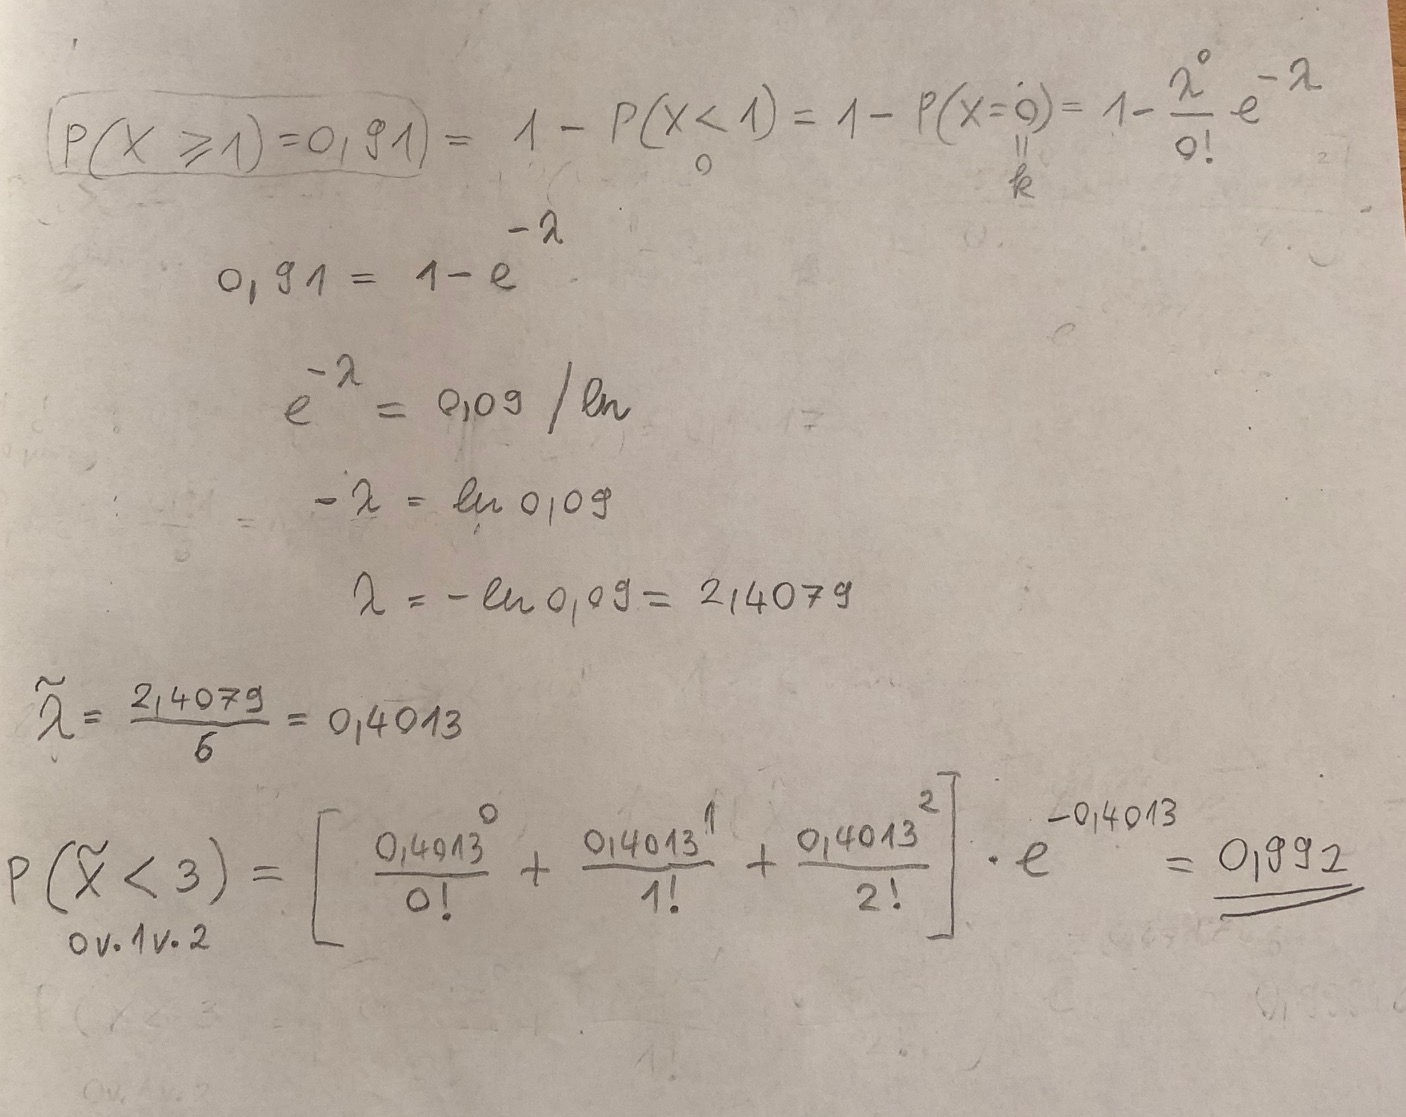 P(X ≥ 1) = 0,91 = 1 - P(X < 1) = 1 - P(X = 0) = 1 - λ⁰/0! e^-λ
0
=
k
0,91 = 1 - e^-λ
e^-λ = 0,09 / ln
-λ = ln 0,09
λ = - ln 0,09 = 2,4079
λ̃ = 2,4079/6 = 0,4013
P(X̃ < 3) = [0,4013⁰/0! + 0,4013¹/1! + 0,4013²/2!] · e^-0,4013 = 0,992
0 v. 1 v. 2